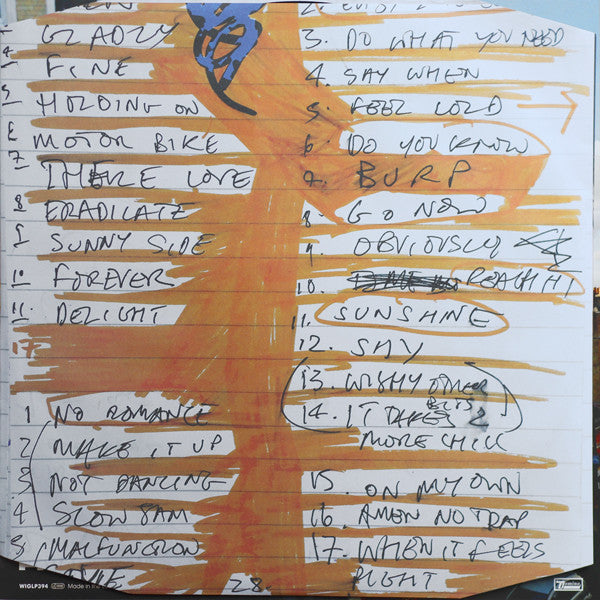 GLADLY
FINE
HOLDING ON
MOTOR BIKE
7 THERE LOVE
8 ERADICATE
9 SUNNY SIDE
10 FOREVER
11. DELIGHT
17
1 NO ROMANCE
2 MAKE IT UP
3 NOT DANCING
4 SLOW JAM
5 MALFUNCTION
28.
3. DO WHAT YOU NEED
4. SAY WHEN
5. FEEL COLD
6. DO YOU KNOW
7. BURP
8. GO NOW
9. OBVIOUSLY
10. REACH HI
11. SUNSHINE
12. SAY
13. WISHY OTHER
BITS
14. IT TAKES 2
MORE CHILL
15. ON MY OWN
16. AMEN NO TRAP
17. WHEN IT FEELS
RIGHT
WIGLP394
Made in the
Domino